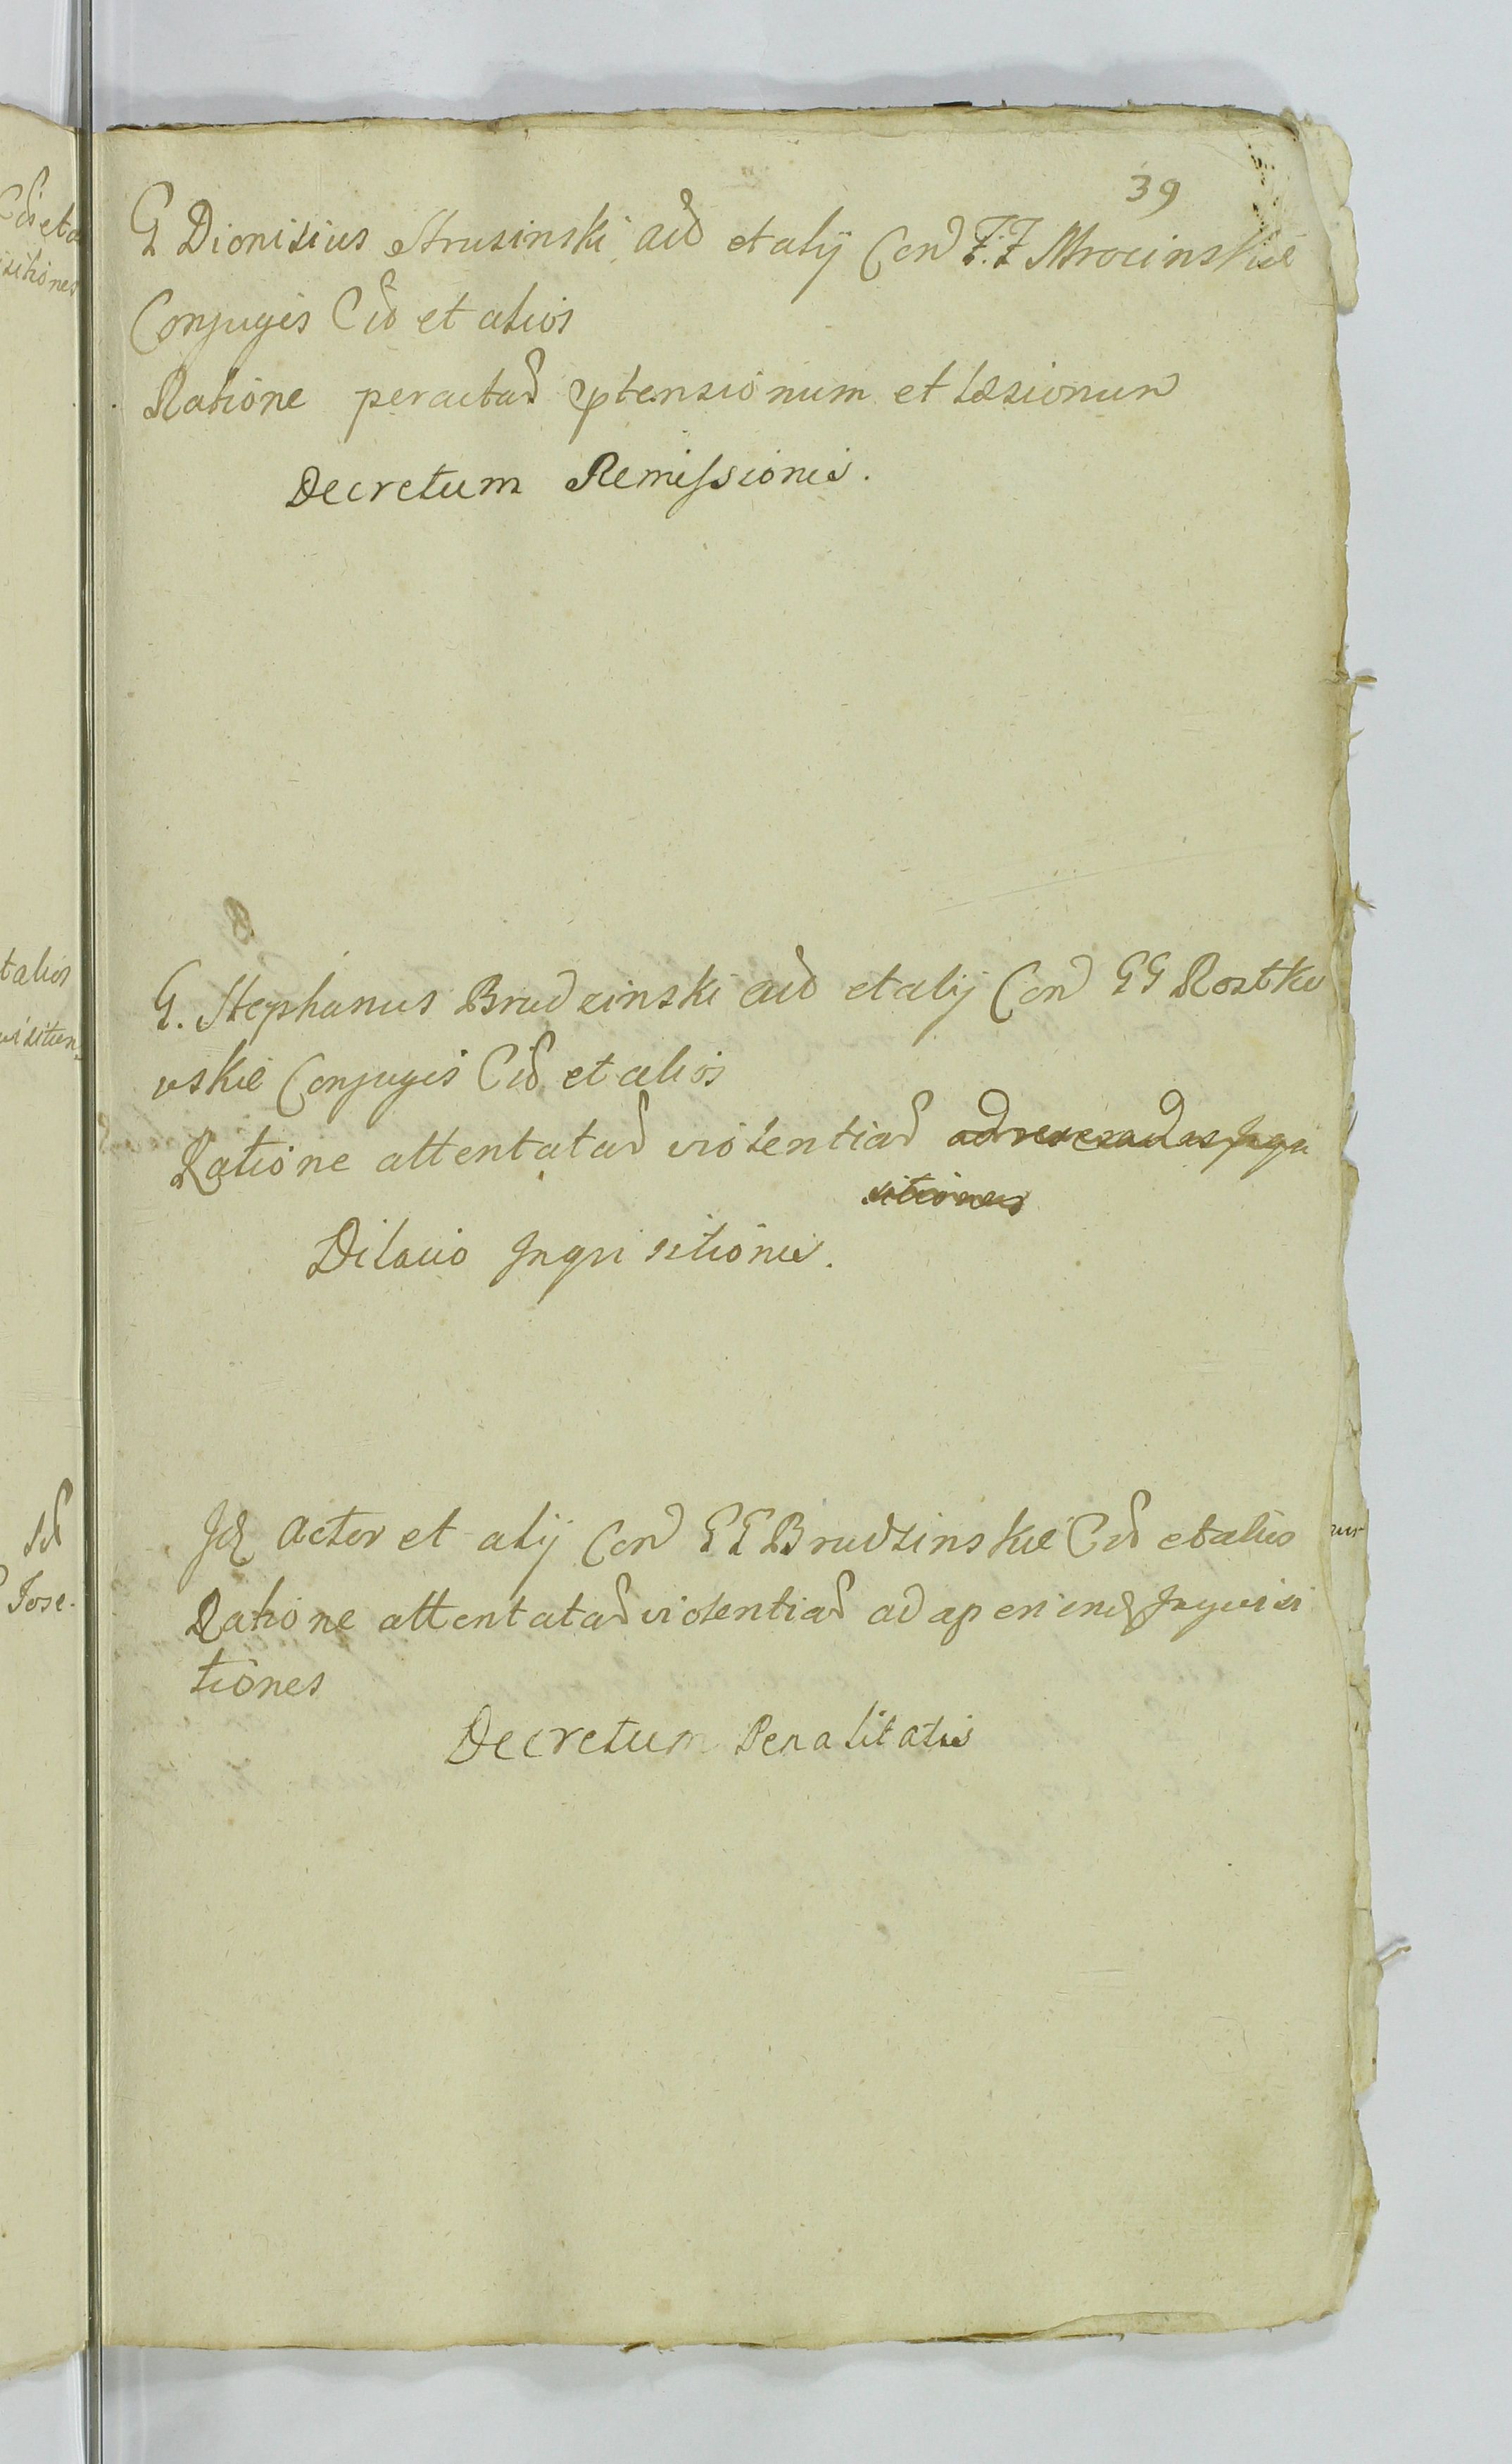 39
G Dionisius Strusinski aŭd et alij Con F.F Mrocinskie
Conjuges Cid et alios
Ratione peractad ptensionum et læsionum
Decretum Remissionis.
G. Stephanus Brudzinski aud et alij Con GG Rostko
vskie Conjuges Cid et alios
Ratione attentatad violentiad Inqui
sitiones
Dilatio Inquisitionis.
Id Actor et alij Con GG Brudzinskie Cid et alios
Ratione attentatad violentiad ad aperiend Inquisi
tiones
Decretum Penalitatis